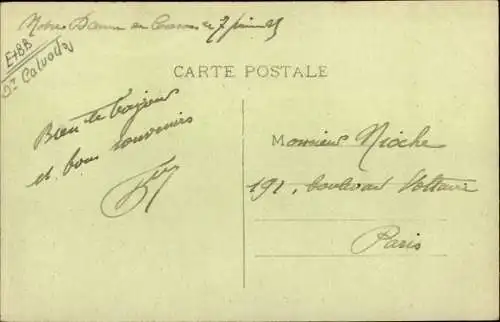 Notre Dame de Courson le 7 juin 25
E188
Dt Calvados
CARTE POSTALE
Bien le bonjour
et bons souvenirs
Monsieur Nioche
191, boulevard Voltaire
Paris